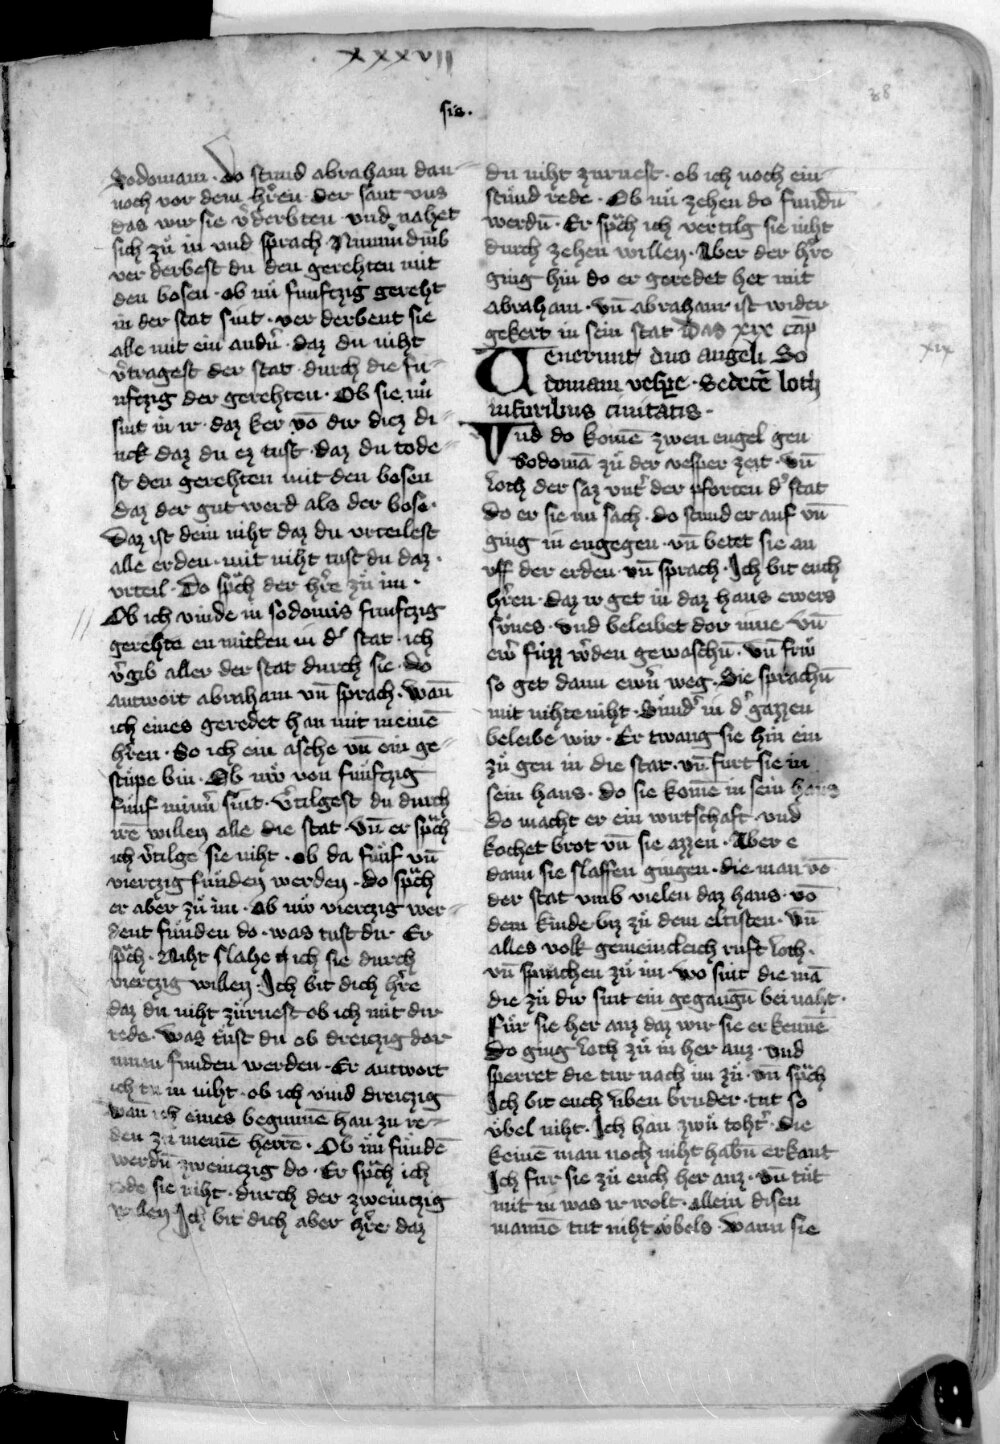 xxxvii
38
sie.
Sodomam. Do stund abraham dan
noch vor dem hren der sant vns
das wir sie vderbten vnd nahet
sich zuͤ in vnd sprach Nummͥ dumb
ver derbest du den gerehten mit
den bosen. ob nuͤ funftzig gereht
in der stat sint. ver derbent sie
alle mit ein andn̄. daz du niht
vtragest der stat. durch die fu
nftzig der gerehten. Ob sie nuͤ
sint in ir. daz ker vō dir diez di
nck daz du ez tust. daz du tode
st den gerehten mit den bosen
daz der gut werd als der bose.
Daz ist dein niht daz du vrteilest
alle erden. mit niht tust du daz.
vrteil. Do spͣch der hr̄e zuͤ im.
Ob ich vinde in sodomis funftzig
gerehte en mitten in dˀ stat. ich
vgib aller der stat durch sie. do
antwort abraham vn̄ sprach. wan̄
ich eines geredet han mit meinē
hren. so ich ein asche vn̄ ein ge
stuͤpe bin. Ob mīr von fuͤnftzig
fuͤnf minn̄ sint. vtilgest du durch
irē willen alle die stat. vn̄ er spͣch
ich vtilge sie niht. ob da fuͤnf vn̄
vierczig funden werden. do spͣch
er aber zuͤ im. Ob nuͤr vierczig wer
dent funden do. was tust dir Er
spͣch. Niht slahe ich sie durch
vierczig willen. Ich bit dich hr̄e
daz du niht zuͤrnest ob ich mit dir
rede. was tust du ob dreiczig dor
innen funden werden. Er antwort
ich tu in niht. ob ich vind dreiczig
wan ich eines begunnē han zu re
den zu meinē herrē. Ob nuͤ fundē
werdn̄ zweinczig do. Er spͣch ich
tode sie niht. durch der zweinczig
willen Ich bit dich aber hr̄e daz
du niht zurnest. ob ich noch ein
stund rede. Ob nuͤ zehen do fundn̄
werdn̄. Er spͣch ich vertilg sie niht
durch zehen willen. Aber der hr̄e
ging hin do er geredet het mit
abraham. vn̄ abraham ist wider
gekert in sein stat Das xix cap̄
xix
Venerunt duo angeli So
domam vespe. Sedetē loth
in foribus ciuitatis.
Vnd do komē zwen engel gen
Sodomā zuͤ der vesper zeit. vn̄
loth der saz vntˀ der pforten dˀ stat
do er sie nu sach. do stund er auf vn̄
ging in engegen. vn̄ betet sie an
vff der erden. vn̄ sprach. Ich bit euch
hren. daz ir get in daz haus ewers
suͤnes. vnd beleibet dor inne vn̄
ewr̄ fuzz wˀden gewaschn̄. vn̄ fruͤ
so get dann ewrn̄ weg. Sie sprachn̄
mit nihte niht. Sundˀ in dˀ gazzen
beleibē wir. Er twang sie hin ein
zuͤ gen in die stat. vn̄ furt sie in
sein haus. do sie komē in sein haus
do macht er ein wirtschaft. vnd
kochet brot vn̄ sie azzen. Aber e
dann sie slaffen gingen. die man vō
der stat vmb vielen daz haus. vō
dem kinde biz zuͤ dem eltisten. vn̄
alles volk gemeincleich ruft loth.
vn̄ sprachen zuͤ im. wo sint die mā
die zuͤ dir sint ein gegangn̄ bei naht.
Fuͤr sie her auz daz wir sie erkennē
Do ging loth zuͤ in her auz. vnd
sperret die tur nach im zuͤ. vn̄ spͣch
Ich bit euch liben bruder. tut so
vͤbel niht. Ich han zwuͤ tohtˀ. die
keinē man noch niht habn̄ erkant
Ich fur sie zuͤ euch her auz. vn̄ tuͤt
mit in was ir wolt. allein disen
mannē tut niht vͤbels. wann sie